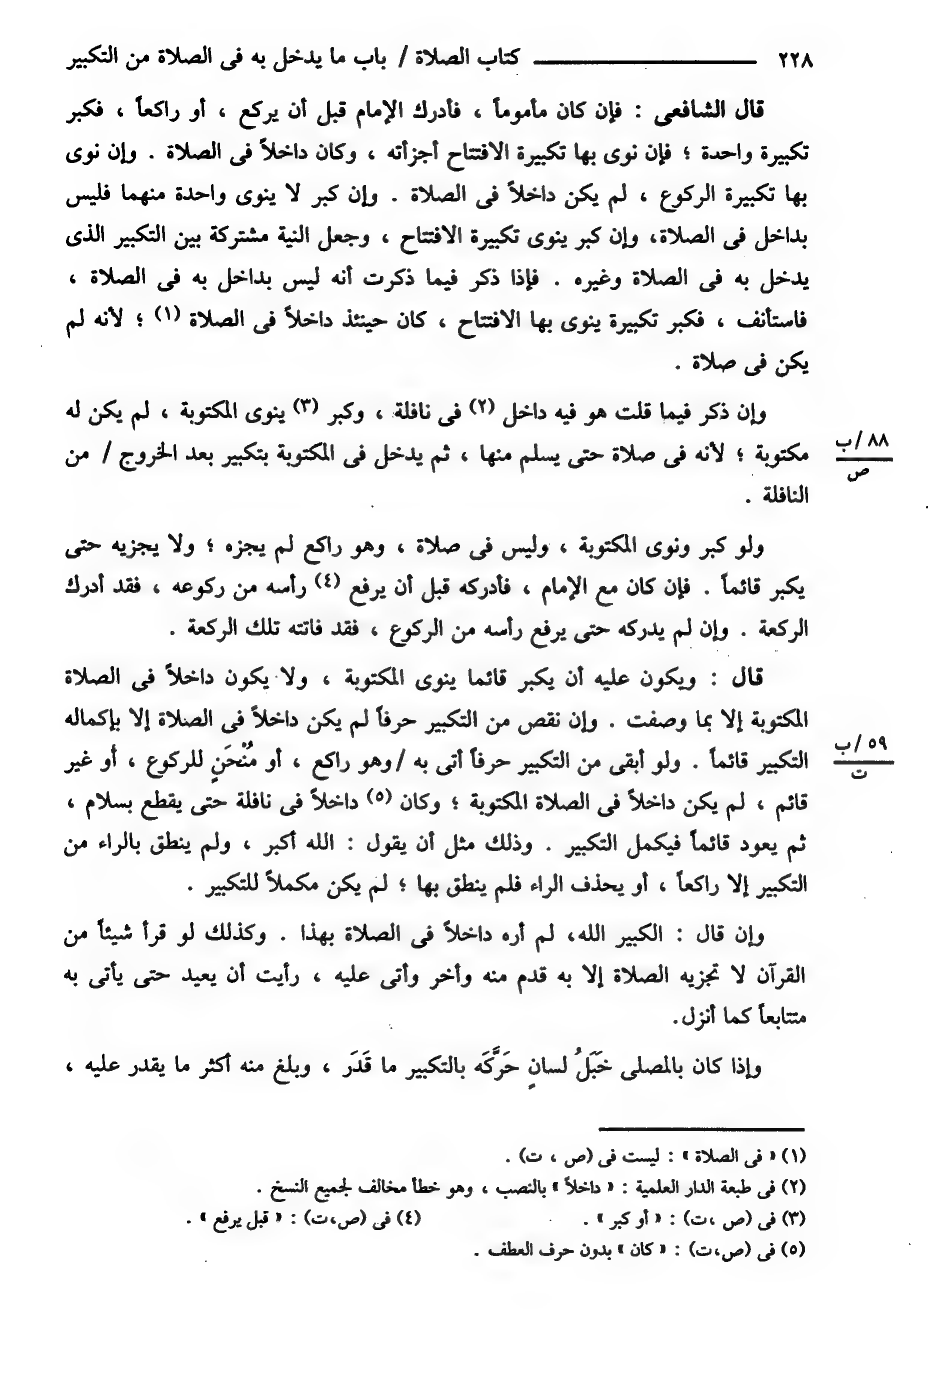 ٢٢٨ ــــــــــــــــ كتاب الصلاة / باب ما يدخل به فى الصلاة من التكبير
قال الشافعى : فإن كان مأموماً ، فأدرك الإمام قبل أن يركع ، أو راكعاً ، فكبر
تكبيرة واحدة ؛ فإن نوى بها تكبيرة الافتتاح أجزأته ، وكان داخلاً فى الصلاة . وإن نوى
بها تكبيرة الركوع ، لم يكن داخلاً فى الصلاة . وإن كبر لا ينوى واحدة منهما فليس
بداخل فى الصلاة، وإن كبر ينوى تكبيرة الافتتاح ، وجعل النية مشتركة بين التكبير الذى
يدخل به فى الصلاة وغيره . فإذا ذكر فيما ذكرت أنه ليس بداخل به فى الصلاة ،
فاستأنف ، فكبر تكبيرة ينوى بها الافتتاح ، كان حينئذ داخلاً فى الصلاة (١) ؛ لأنه لم
يكن فى صلاة .
وإن ذكر فيما قلت هو فيه داخل (٢) فى نافلة ، وكبر (٣) ينوى المكتوبة ، لم يكن له
مكتوبة ؛ لأنه فى صلاة حتى يسلم منها ، ثم يدخل فى المكتوبة بتكبير بعد الخروج / من
النافلة .
٨٨ /ب
ص
ولو كبر ونوى المكتوبة ، وليس فى صلاة ، وهو راكع لم يجزه ؛ ولا يجزيه حتى
يكبر قائماً . فإن كان مع الإمام ، فأدركه قبل أن يرفع (٤) رأسه من ركوعه ، فقد أدرك
الركعة . وإن لم يدركه حتى يرفع رأسه من الركوع ، فقد فاتته تلك الركعة .
قال : ويكون عليه أن يكبر قائما ينوى المكتوبة ، ولا يكون داخلاً فى الصلاة
المكتوبة إلا بما وصفت . وإن نقص من التكبير حرفاً لم يكن داخلاً فى الصلاة إلا بإكماله
التكبير قائماً . ولو أبقى من التكبير حرفاً أتى به / وهو راكع ، أو مُنْحَنٍ للركوع ، أو غير
٥٩ /ب
ت
قائم ، لم يكن داخلاً فى الصلاة المكتوبة ؛ وكان (٥) داخلاً فى نافلة حتى يقطع بسلام ،
ثم يعود قائماً فيكمل التكبير . وذلك مثل أن يقول : الله أكبر ، ولم ينطق بالراء من
التكبير إلا راكعاً ، أو يحذف الراء فلم ينطق بها ؛ لم يكن مكملاً للتكبير .
وإن قال : الكبير الله، لم أره داخلاً فى الصلاة بهذا . وكذلك لو قرأ شيئاً من
القرآن لا تجزيه الصلاة إلا به قدم منه وأخر وأتى عليه ، رأيت أن يعيد حتى يأتى به
متتابعاً كما أنزل.
وإذا كان بالمصلى خَبَلُ لسانٍ حَرَّكَه بالتكبير ما قَدَر ، وبلغ منه أكثر ما يقدر عليه ،
(١) « فى الصلاة » : ليست فى (ص ، ت) .
(٢) فى طبعة الدار العلمية : « داخلاً » بالنصب ، وهو خطأ مخالف لجميع النسخ .
(٣) فى (ص ،ت) : « أو كبر » . (٤) فى (ص،ت) : « قبل يرفع » .
(٥) فى (ص،ت) : « كان » بدون حرف العطف .